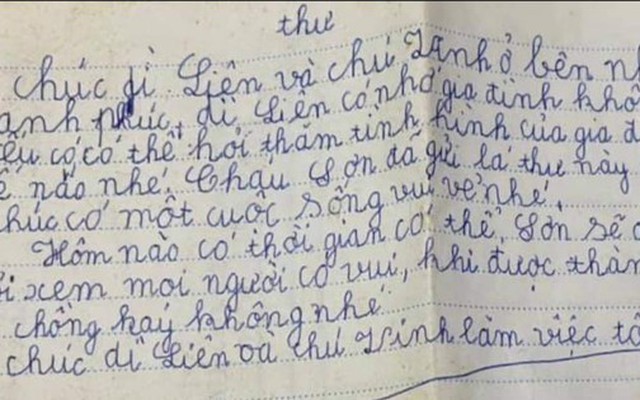 thư
chúc dì Liên và chú Lanh ở bên n
anh phúc, dì Liên có nhớ gia đình khô
ếu có có thể hỏi thăm tình hình của gia đ
ế nào nhé. Cháu Sơn đã gửi lá thư này
chúc có một cuộc sống vui vẻ nhé.
Hôm nào có thời gian có thể Sơn sẽ
i xem mọi người có vui, khi được thăm
chồng hay không nhé
chúc dì Liên và chú Lính làm việc tố